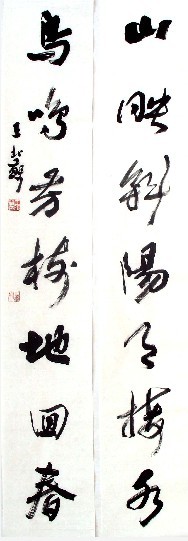 山映斜陽天接水
鳥鳴芳樹地回春